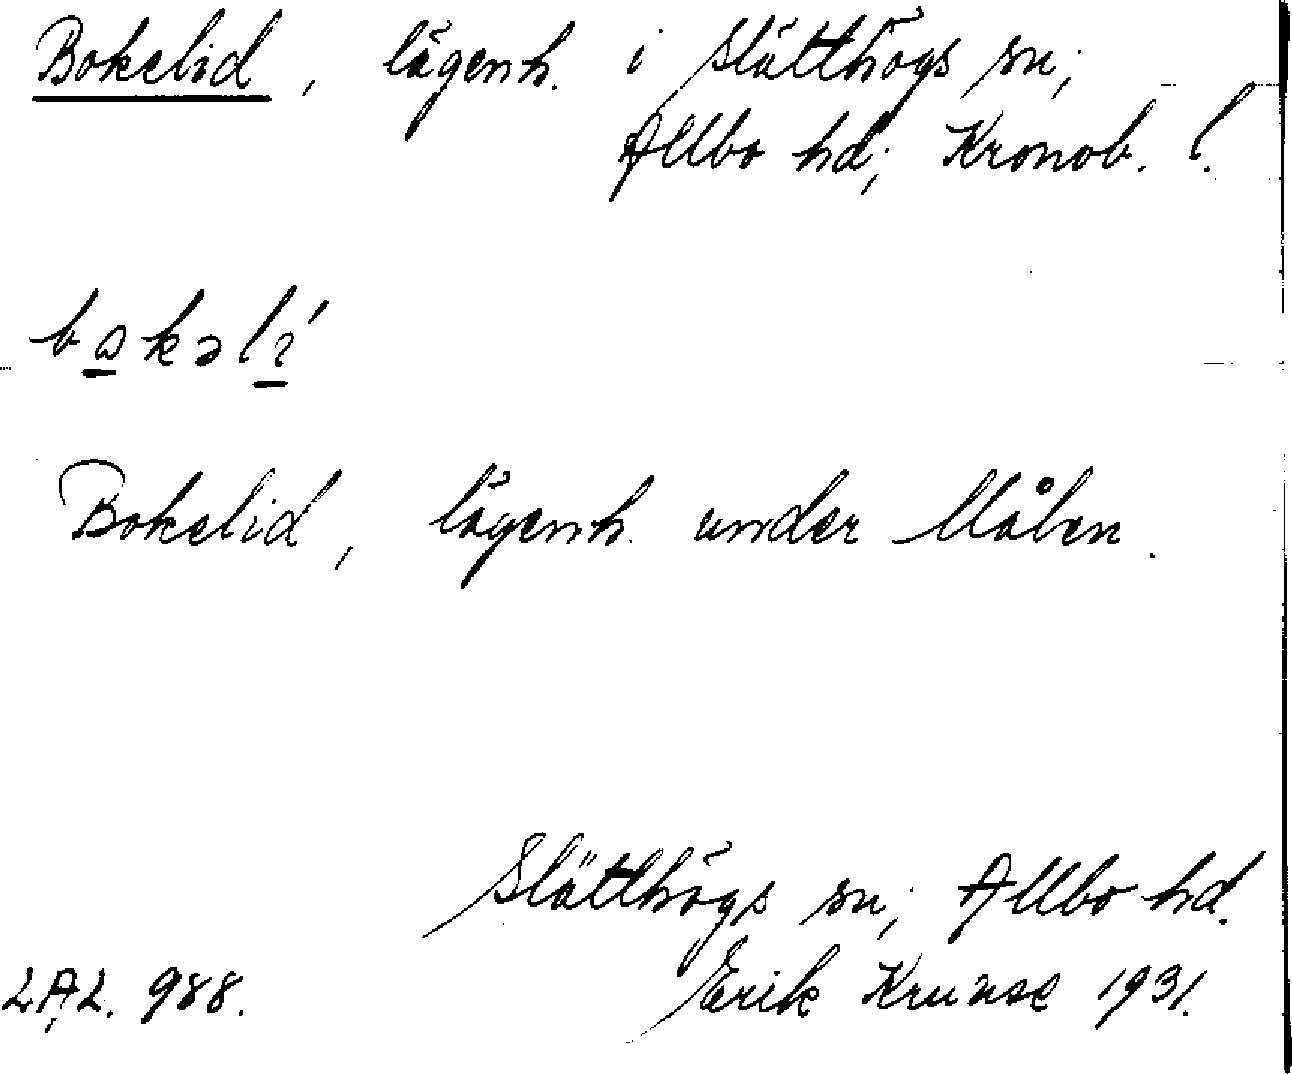 Bokelid, lägenh. i Slätthögs sn;
Allbo hd; Kronob. l.
Bokelid, lägenh. under Målen.
Slätthögs sn; Allbo hd.
L.A.L. 988. Erik Krunse 1931.